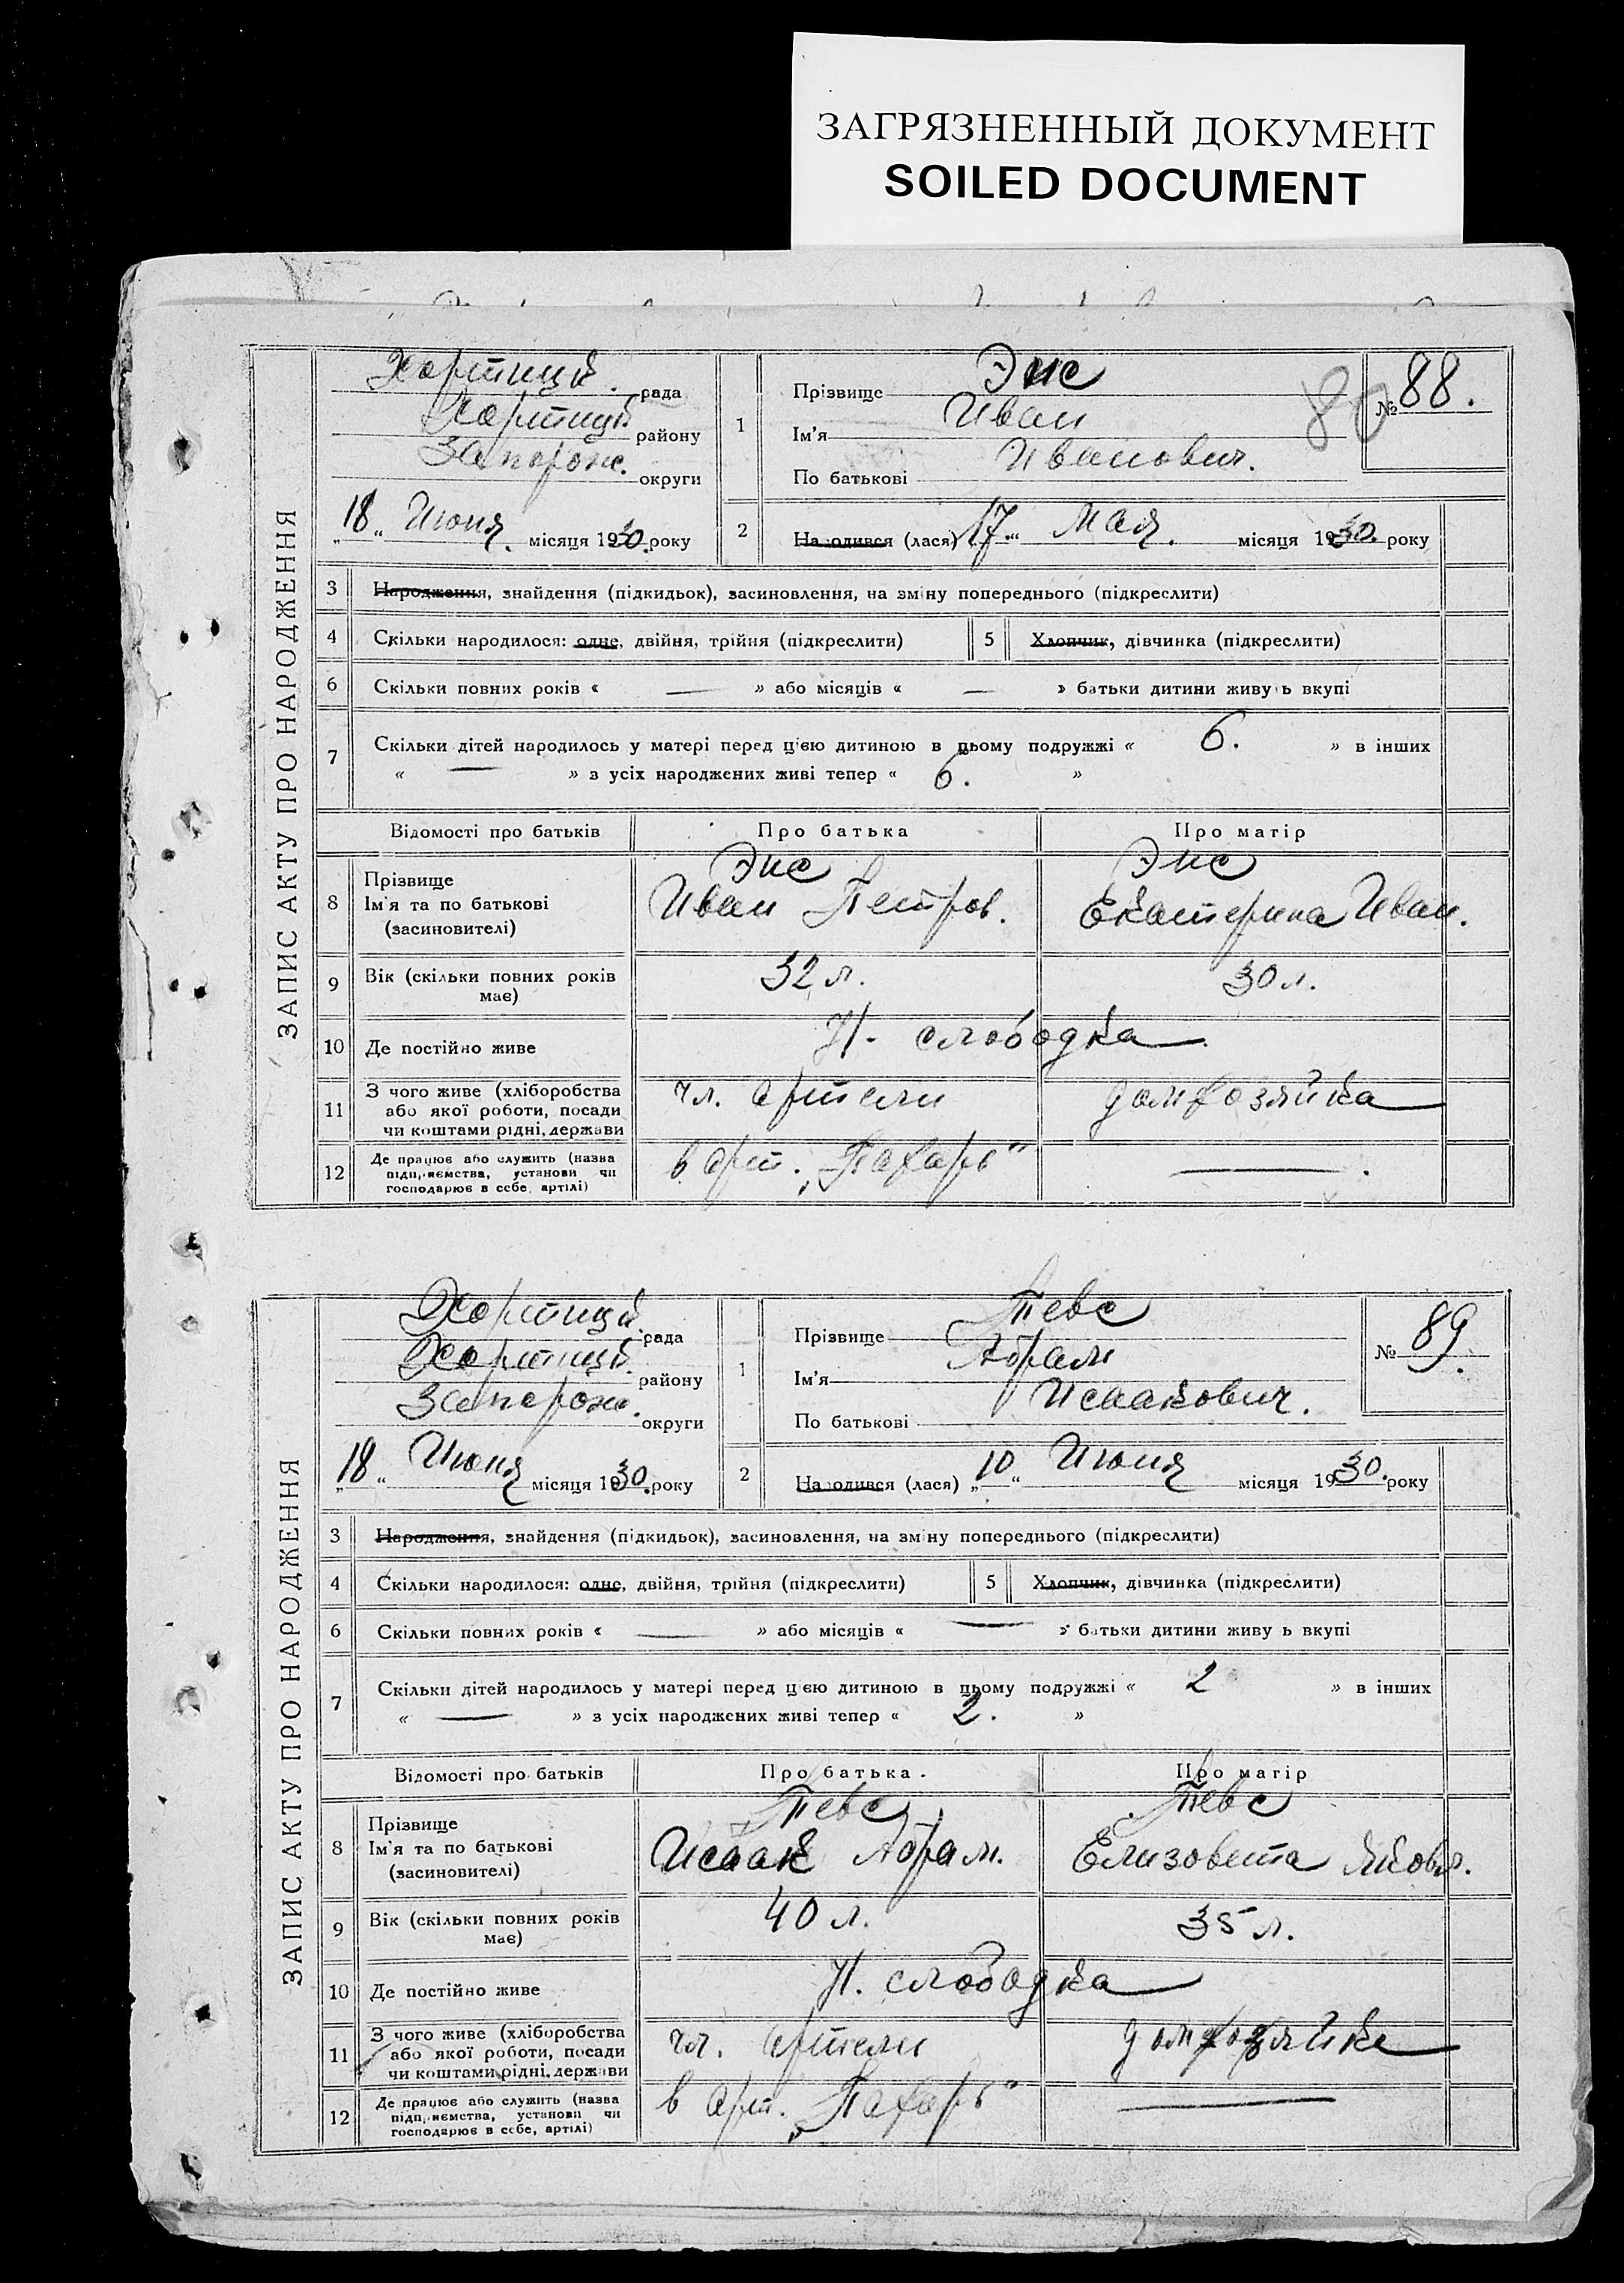 ЗАГРЯЗНЕННЫЙ ДОКУМЕНТ
SOILED DOCUMENT
ЗАПИС АКТУ ПРО НАРОДЖЕННЯ
Хортицй. рада
Хортицй районy
Запорож. округи
„18“ Июня. місяця 1930. року
1
Прізвище Энс
Ім'я Иван
По батькові Иванович.
80
№ 88.
2 Народився (лася) „17“ Мая. місяця 1930. року
3 Народження, знайдення (підкидьок), засиновлення, на зміну попереднього (підкреслити)
4 Скільки народилося: одне, двійня, трійня (підкреслити) 5 Хлопчик, дівчинка (підкреслити)
6 Скільки повних років « — » або місяців « — » батьки дитини живуть вкупі
7 Скільки дітей народилось у матері перед цією дитиною в цьому подружжі « 6. » в інших
« — » з усіх народжених живі тепер « 6. »
Відомості про батьків Про батька Про матір
8 Прізвище Энс Энс
Ім'я та по батькові Иван Петров. Екатерина Иван.
(засиновителі)
9 Вік (скільки повних років має) 32 л. 30 л.
10 Де постійно живе Н. слободка
11 З чого живе (хліборобства чл. артели домхозяйка
або якої роботи, посади
чи коштами рідні, держави
12 Де працює або служить (назва в арт. „Пахарь“ — .
підприємства, установи чи
господарює в себе, артілі)
ЗАПИС АКТУ ПРО НАРОДЖЕННЯ
Хортицй. рада
Хортицй. району
Запорож. округи
„18“ Июня місяця 1930. року
1
Прізвище Тевс
Ім'я Абрам
По батькові Исаакович.
№ 89.
2 Народився (лася) „10“ Июня місяця 1930. року
3 Народження, знайдення (підкидьок), засиновлення, на зміну попереднього (підкреслити)
4 Скільки народилося: одне, двійня, трійня (підкреслити) 5 Хлопчик, дівчинка (підкреслити)
6 Скільки повних років « — » або місяців « — » батьки дитини живуть вкупі
7 Скільки дітей народилось у матері перед цією дитиною в цьому подружжі « 2 » в інших
« — » з усіх народжених живі тепер « 2. »
Відомості про батьків Про батька. Про матір
8 Прізвище Тевс Тевс
Ім'я та по батькові Исаак Абрам. Елизовета Яковл.
(засиновителі)
9 Вік (скільки повних років має) 40 л. 35 л.
10 Де постійно живе Н. слободка
11 З чого живе (хліборобства чл. артели домхозяйка
або якої роботи, посади
чи коштами рідні, держави
12 Де працює або служить (назва в арт. „Пахарь“ —
підприємства, установи чи
господарює в себе, артілі)